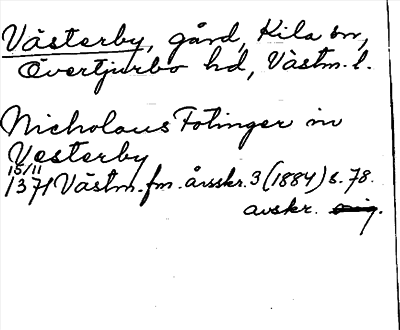 Västerby, gård, Kila sn,
Övertjurbo hd, Västm. l.
Nicholaus Fotinger in
Vesterby
15/11
1371 Västm. fm. årsskr. 3 (1884) s. 78.
avskr.